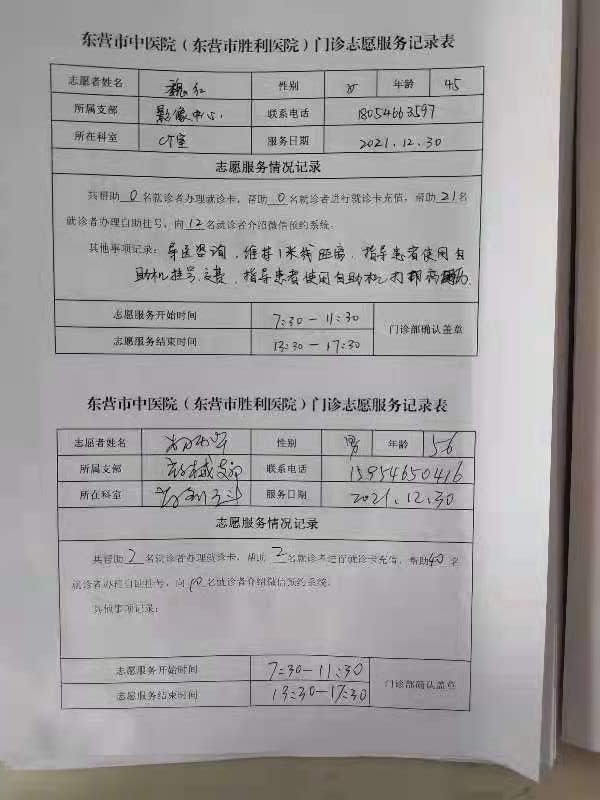 东营市中医院（东营市胜利医院）门诊志愿服务记录表
志愿者姓名 魏红 性别 女 年龄 45
所属支部 影像中心 联系电话 18054663597
所在科室 CT室 服务日期 2021.12.30
志愿服务情况记录
共帮助0名就诊者办理就诊卡，帮助0名就诊者进行就诊卡充值，帮助21名
就诊者办理自助挂号，向12名就诊者介绍微信预约系统。
其他事项记录：导医咨询，维持1米线距离，指导患者使用自
助机挂号交费，指导患者使用自助机打印病历.
志愿服务开始时间 7:30－11:30 门诊部确认盖章
志愿服务结束时间 13:30－17:30
东营市中医院（东营市胜利医院）门诊志愿服务记录表
志愿者姓名 性别 男 年龄 56
所属支部 联系电话 15954650416
所在科室 服务日期 2021.12.30
志愿服务情况记录
共帮助2名就诊者办理就诊卡，帮助2名就诊者进行就诊卡充值，帮助40名
就诊者办理自助挂号，向10名就诊者介绍微信预约系统。
其他事项记录：
志愿服务开始时间 7:30－11:30 门诊部确认盖章
志愿服务结束时间 13:30－17:30